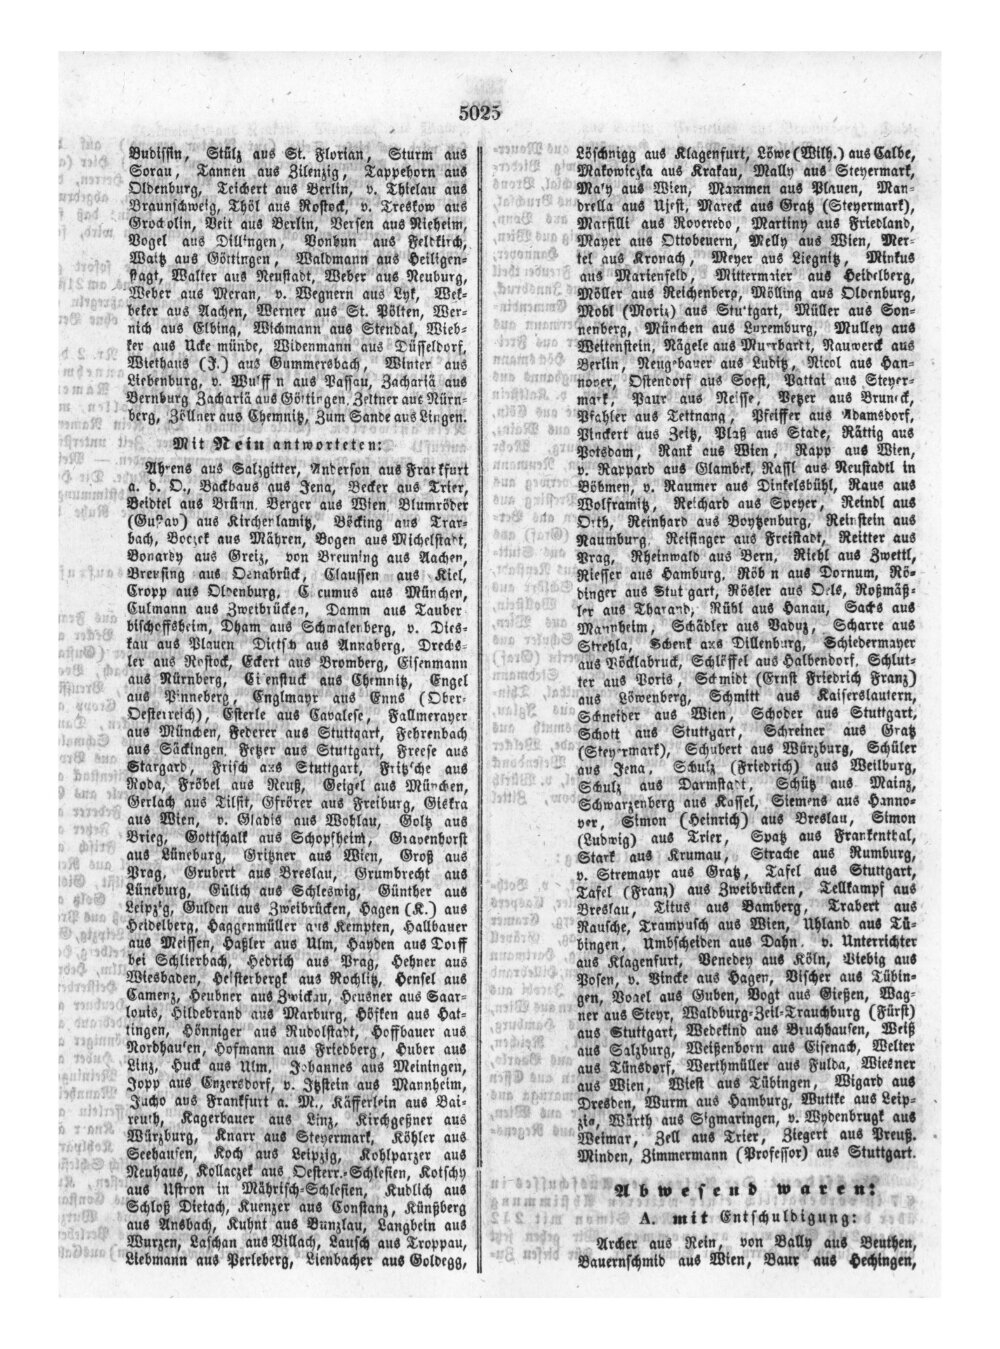 5025
Budissin, Stülz aus St. Florian, Sturm aus
Sorau, Tannen aus Zilenzig, Tappehorn aus
Oldenburg, Teichert aus Berlin, v. Thielau aus
Braunschweig, Thöl aus Rostock, v. Treskow aus
Grocholin, Veit aus Berlin, Versen aus Nieheim,
Vogel aus Dillingen, Vonbun aus Feldkirch,
Waitz aus Göttingen, Waldmann aus Heiligen-
stadt, Walter aus Neustadt, Weber aus Neuburg,
Weber aus Meran, v. Wegnern aus Lyk, Wek-
beker aus Aachen, Werner aus St. Pölten, Wer-
nich aus Elbing, Wichmann aus Stendal, Wieb-
ker aus Uckermünde, Widenmann aus Düsseldorf,
Wiethaus (J.) aus Gummersbach, Winter aus
Liebenburg, v. Wulffen aus Passau, Zachariä aus
Bernburg Zachariä aus Göttingen, Zeltner aus Nürn-
berg, Zöllner aus Chemnitz, Zum Sande aus Lingen.
Mit Nein antworteten:
Ahrens aus Salzgitter, Anderson aus Frankfurt
a. d. O., Backhaus aus Jena, Becker aus Trier,
Beidtel aus Brünn, Berger aus Wien, Blumröder
(Gustav) aus Kirchenlamitz, Böcking aus Trar-
bach, Boczek aus Mähren, Bogen aus Michelstadt,
Bonardy aus Greiz, von Breuning aus Aachen,
Breusing aus Osnabrück, Claussen aus Kiel,
Cropp aus Oldenburg, Cucumus aus München,
Culmann aus Zweibrücken, Damm aus Tauber
bischoffsheim, Dham aus Schmalenberg, v. Dies-
kau aus Plauen Dietsch aus Annaberg, Drechs-
ler aus Rostock, Eckert aus Bromberg, Eisenmann
aus Nürnberg, Eisenstuck aus Chemnitz, Engel
aus Pinneberg, Englmayr aus Enns (Ober-
Oesterreich), Esterle aus Cavalese, Fallmerayer
aus München, Federer aus Stuttgart, Fehrenbach
aus Säckingen, Fetzer aus Stuttgart, Freese aus
Stargard, Frisch aus Stuttgart, Fritzsche aus
Roda, Fröbel aus Reuß, Geigel aus München,
Gerlach aus Tilsit, Gfrörer aus Freiburg, Giskra
aus Wien, v. Gladis aus Wohlau, Goltz aus
Brieg, Gottschalk aus Schopfheim, Gravenhorst
aus Lüneburg, Gritzner aus Wien, Groß aus
Prag, Grubert aus Breslau, Grumbrecht aus
Lüneburg, Gülich aus Schleswig, Günther aus
Leipzig, Gulden aus Zweibrücken, Hagen (K.) aus
Heidelberg, Haggenmüller aus Kempten, Hallbauer
aus Meissen, Haßler aus Ulm, Hayden aus Dorff
bei Schlierbach, Hedrich aus Prag, Hehner aus
Wiesbaden, Heisterbergk aus Rochlitz, Hensel aus
Camenz, Heubner aus Zwickau, Heusner aus Saar-
louis, Hildebrand aus Marburg, Höfken aus Hat-
tingen, Hönniger aus Rudolstadt, Hoffbauer aus
Nordhausen, Hofmann aus Friedberg, Huber aus
Linz, Huck aus Ulm, Johannes aus Meiningen,
Jopp aus Enzersdorf, v. Itzstein aus Mannheim,
Jucho aus Frankfurt a. M., Käfferlein aus Bai-
reuth, Kagerbauer aus Linz, Kirchgeßner aus
Würzburg, Knarr aus Steyermark, Köhler aus
Seehausen, Koch aus Leipzig, Kohlparzer aus
Neuhaus, Kollaczek aus Oesterr.-Schlesien, Kotschy
aus Ustron in Mährisch-Schlesien, Kudlich aus
Schloß Dietach, Kuenzer aus Constanz, Künßberg
aus Ansbach, Kuhnt aus Bunzlau, Langbein aus
Wurzen, Laschan aus Villach, Lausch aus Troppau,
Liebmann aus Perleberg, Lienbacher aus Goldegg,
Löschnigg aus Klagenfurt, Löwe (Wilh.) aus Calbe,
Makowiczka aus Krakau, Mally aus Steyermark,
Maly aus Wien, Mammen aus Plauen, Man-
drella aus Ujest, Mareck aus Gratz (Steyermark),
Marsilli aus Roveredo, Martiny aus Friedland,
Mayer aus Ottobeuern, Melly aus Wien, Mer-
tel aus Kronach, Meyer aus Liegnitz, Minkus
aus Marienfeld, Mittermaier aus Heidelberg,
Möller aus Reichenberg, Mölling aus Oldenburg,
Mohl (Moriz) aus Stuttgart, Müller aus Son-
nenberg, München aus Luxemburg, Mulley aus
Weitenstein, Nägele aus Murrhardt, Nauwerck aus
Berlin, Neugebauer aus Luditz, Nicol aus Han-
nover, Ostendorf aus Soest, Pattai aus Steyer-
mark, Paur aus Neisse, Petzer aus Bruneck,
Pfahler aus Tettnang, Pfeiffer aus Adamsdorf,
Pinckert aus Zeitz, Plaß aus Stade, Rättig aus
Potsdam, Rank aus Wien, Rapp aus Wien,
v. Rappard aus Glambek, Rassl aus Neustadtl in
Böhmen, v. Raumer aus Dinkelsbühl, Raus aus
Wolframitz, Reichard aus Speyer, Reindl aus
Orth, Reinhard aus Boytzenburg, Reinstein aus
Naumburg, Reisinger aus Freistadt, Reitter aus
Prag, Rheinwald aus Bern, Riehl aus Zwettl,
Riesser aus Hamburg, Röben aus Dornum, Rö-
dinger aus Stuttgart, Rösler aus Oels, Roßmäß-
ler aus Tharand, Rühl aus Hanau, Sachs aus
Mannheim, Schädler aus Vaduz, Scharre aus
Strehla, Schenk aus Dillenburg, Schiedermayer
aus Vöcklabruck, Schlöffel aus Halbendorf, Schlut-
ter aus Poris, Schmidt (Ernst Friedrich Franz)
aus Löwenberg, Schmitt aus Kaiserslautern,
Schneider aus Wien, Schoder aus Stuttgart,
Schott aus Stuttgart, Schreiner aus Gratz
(Steyermark), Schubert aus Würzburg, Schüler
aus Jena, Schulz (Friedrich) aus Weilburg,
Schulz aus Darmstadt, Schütz aus Mainz,
Schwarzenberg aus Kassel, Siemens aus Hanno-
ver, Simon (Heinrich) aus Breslau, Simon
(Ludwig) aus Trier, Spatz aus Frankenthal,
Stark aus Krumau, Strache aus Rumburg,
v. Stremayr aus Gratz, Tafel aus Stuttgart,
Tafel (Franz) aus Zweibrücken, Tellkampf aus
Breslau, Titus aus Bamberg, Trabert aus
Rausche, Trampusch aus Wien, Uhland aus Tü-
bingen, Umbscheiden aus Dahn, v. Unterrichter
aus Klagenfurt, Venedey aus Köln, Viebig aus
Posen, v. Vincke aus Hagen, Vischer aus Tübin-
gen, Vogel aus Guben, Vogt aus Gießen, Wag-
ner aus Steyr, Waldburg-Zeil-Trauchburg (Fürst)
aus Stuttgart, Wedekind aus Bruchhausen, Weiß
aus Salzburg, Weißenborn aus Eisenach, Welter
aus Tünsdorf, Werthmüller aus Fulda, Wiesner
aus Wien, Wiest aus Tübingen, Wigard aus
Dresden, Wurm aus Hamburg, Wuttke aus Leip-
zig, Würth aus Sigmaringen, v. Wydenbrugk aus
Weimar, Zell aus Trier, Ziegert aus Preuß.
Minden, Zimmermann (Professor) aus Stuttgart.
Abwesend waren:
A. mit Entschuldigung:
Archer aus Rein, von Bally aus Beuthen,
Bauernschmid aus Wien, Baur aus Hechingen,